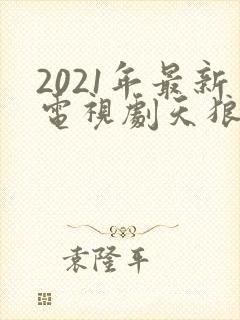 2021年最新
電視劇天狼
袁隆平